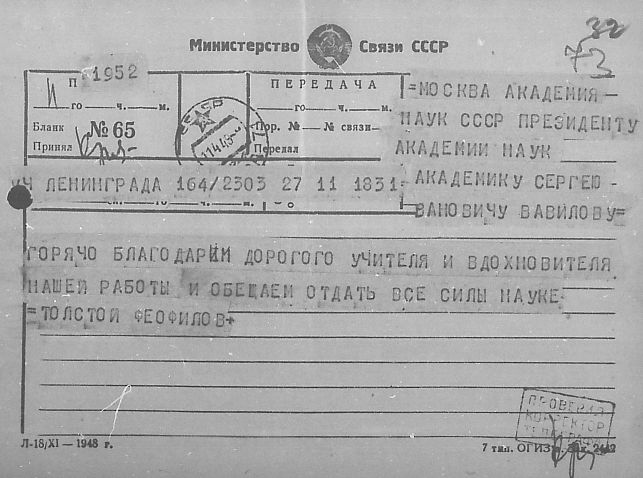 32
73
Министерство Связи СССР
1952
го ч. м.
Бланк № 65
Принял
ПЕРЕДАЧА
го ч. м.
Пор. № № связи
Передал
=МОСКВА АКАДЕМИЯ-
НАУК СССР ПРЕЗИДЕНТУ
АКАДЕМИИ НАУК
АКАДЕМИКУ СЕРГЕЮ-
ВАНОВИЧУ ВАВИЛОВУ=
ЛЕНИНГРАДА 164/2303 27 11 1831=
ГОРЯЧО БЛАГОДАРИМ ДОРОГОГО УЧИТЕЛЯ И ВДОХНОВИТЕЛЯ
НАШЕЙ РАБОТЫ И ОБЕЩАЕМ ОТДАТЬ ВСЕ СИЛЫ НАУКЕ
=ТОЛСТОЙ ФЕОФИЛОВ+
ПРОВЕРИЛ
КОРРЕКТОР
Л-18/XI — 1948 г.
7 тип. ОГИЗ